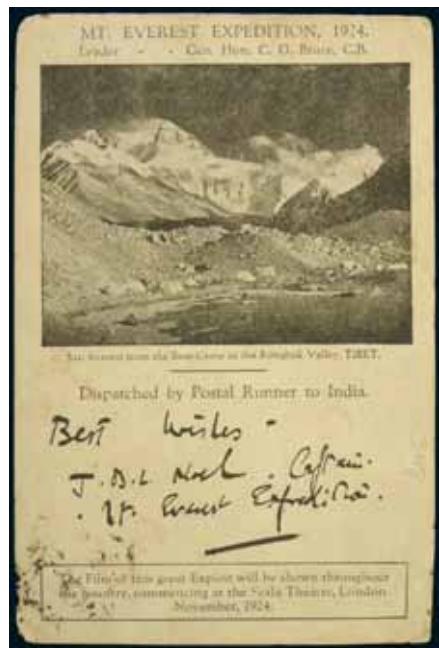 MT. EVEREST EXPEDITION, 1924.
Leader - - Gen. Hon. C. G. Bruce, C.B.
Mt. Everest from the Base Camp in the Rongbuk Valley, TIBET.
Dispatched by Postal Runner to India.
Best Wishes -
J.B.L Noel. Captain.
. Mt. Everest Expedition.
The Film of this great Exploit will be shown throughout
the country, commencing at the Scala Theatre, London
November, 1924.